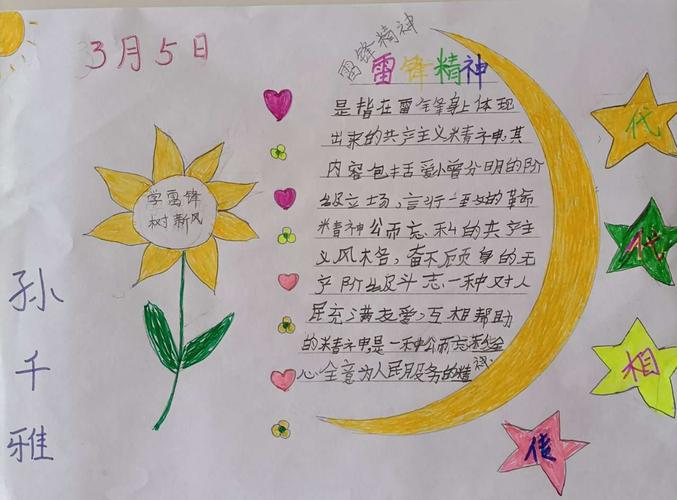 3月5日
雷锋精神
雷锋精神
学雷锋
树新风
孙千雅
是指在雷锋身上体现
出来的共产主义精神其
内容包括爱憎分明的阶
级立场,言行一致的革命
精神公而忘私的共产主
义风格,奋不顾身的无
产阶级斗志一种对人
民充满友爱,互相帮助
的精神是一种公而忘私全
心全意为人民服务的精神
代
代
相
传